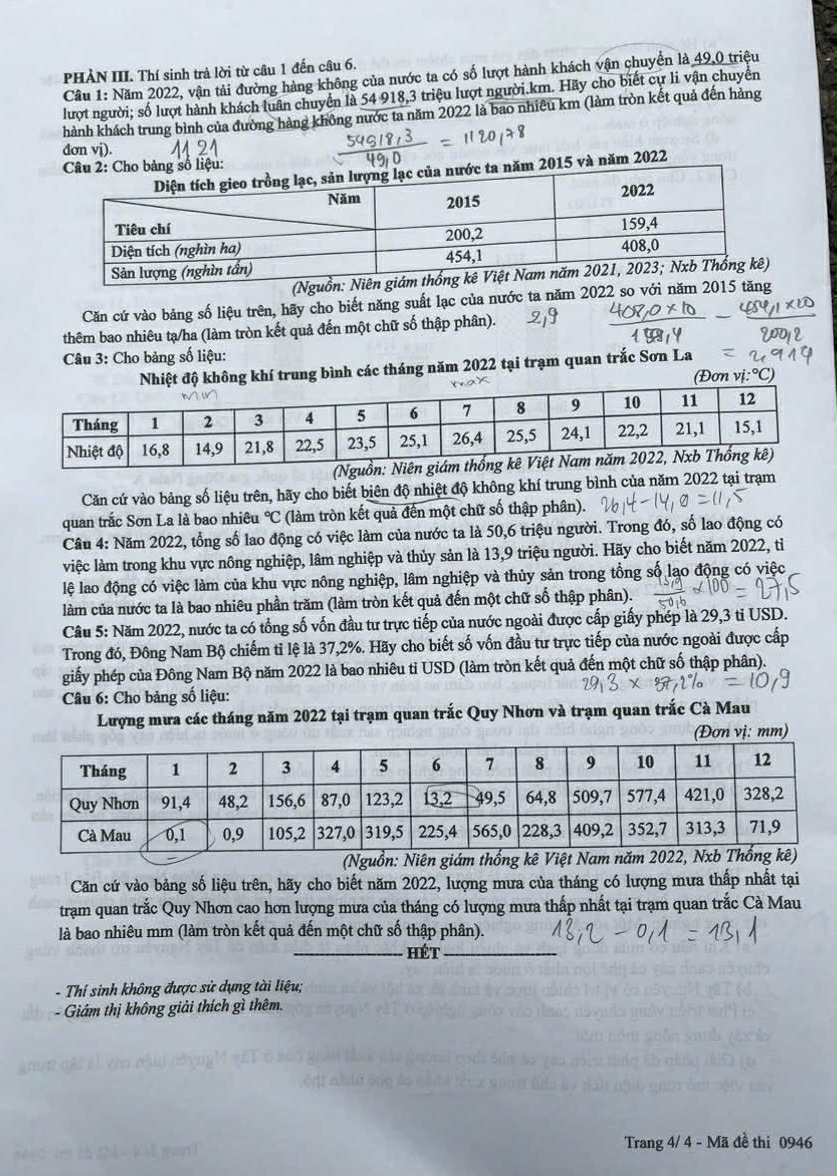 PHẦN III. Thí sinh trả lời từ câu 1 đến câu 6.
Câu 1: Năm 2022, vận tải đường hàng không của nước ta có số lượt hành khách vận chuyển là 49,0 triệu
lượt người; số lượt hành khách luân chuyển là 54 918,3 triệu lượt người.km. Hãy cho biết cự li vận chuyển
hành khách trung bình của đường hàng không nước ta năm 2022 là bao nhiêu km (làm tròn kết quả đến hàng
đơn vị). 1121 54918,3 / 49,0 = 1120,78
Câu 2: Cho bảng số liệu:
Diện tích gieo trồng lạc, sản lượng lạc của nước ta năm 2015 và năm 2022
Năm 2015 2022
Tiêu chí
Diện tích (nghìn ha) 200,2 159,4
Sản lượng (nghìn tấn) 454,1 408,0
(Nguồn: Niên giám thống kê Việt Nam năm 2021, 2023; Nxb Thống kê)
Căn cứ vào bảng số liệu trên, hãy cho biết năng suất lạc của nước ta năm 2022 so với năm 2015 tăng
thêm bao nhiêu tạ/ha (làm tròn kết quả đến một chữ số thập phân). 2,9 408,0 x 10 / - 454,1 x 20 / 200,2
Câu 3: Cho bảng số liệu: = 2,914
Nhiệt độ không khí trung bình các tháng năm 2022 tại trạm quan trắc Sơn La
(Đơn vị:°C)
min max
Tháng 1 2 3 4 5 6 7 8 9 10 11 12
Nhiệt độ 16,8 14,9 21,8 22,5 23,5 25,1 26,4 25,5 24,1 22,2 21,1 15,1
(Nguồn: Niên giám thống kê Việt Nam năm 2022, Nxb Thống kê)
Căn cứ vào bảng số liệu trên, hãy cho biết biên độ nhiệt độ không khí trung bình của năm 2022 tại trạm
quan trắc Sơn La là bao nhiêu °C (làm tròn kết quả đến một chữ số thập phân). 26,4 - 14,9 = 11,5
Câu 4: Năm 2022, tổng số lao động có việc làm của nước ta là 50,6 triệu người. Trong đó, số lao động có
việc làm trong khu vực nông nghiệp, lâm nghiệp và thủy sản là 13,9 triệu người. Hãy cho biết năm 2022, tỉ
lệ lao động có việc làm của khu vực nông nghiệp, lâm nghiệp và thủy sản trong tổng số lao động có việc
làm của nước ta là bao nhiêu phần trăm (làm tròn kết quả đến một chữ số thập phân). 13,9 / 50,6 x 100 = 27,5
Câu 5: Năm 2022, nước ta có tổng số vốn đầu tư trực tiếp của nước ngoài được cấp giấy phép là 29,3 tỉ USD.
Trong đó, Đông Nam Bộ chiếm tỉ lệ là 37,2%. Hãy cho biết số vốn đầu tư trực tiếp của nước ngoài được cấp
giấy phép của Đông Nam Bộ năm 2022 là bao nhiêu tỉ USD (làm tròn kết quả đến một chữ số thập phân).
29,3 x 37,2% = 10,9
Câu 6: Cho bảng số liệu:
Lượng mưa các tháng năm 2022 tại trạm quan trắc Quy Nhơn và trạm quan trắc Cà Mau
(Đơn vị: mm)
Tháng 1 2 3 4 5 6 7 8 9 10 11 12
Quy Nhơn 91,4 48,2 156,6 87,0 123,2 13,2 49,5 64,8 509,7 577,4 421,0 328,2
Cà Mau 0,1 0,9 105,2 327,0 319,5 225,4 565,0 228,3 409,2 352,7 313,3 71,9
(Nguồn: Niên giám thống kê Việt Nam năm 2022, Nxb Thống kê)
Căn cứ vào bảng số liệu trên, hãy cho biết năm 2022, lượng mưa của tháng có lượng mưa thấp nhất tại
trạm quan trắc Quy Nhơn cao hơn lượng mưa của tháng có lượng mưa thấp nhất tại trạm quan trắc Cà Mau
là bao nhiêu mm (làm tròn kết quả đến một chữ số thập phân). 13,2 - 0,1 = 13,1
HẾT
- Thí sinh không được sử dụng tài liệu;
- Giám thị không giải thích gì thêm.
Trang 4/ 4 - Mã đề thi 0946